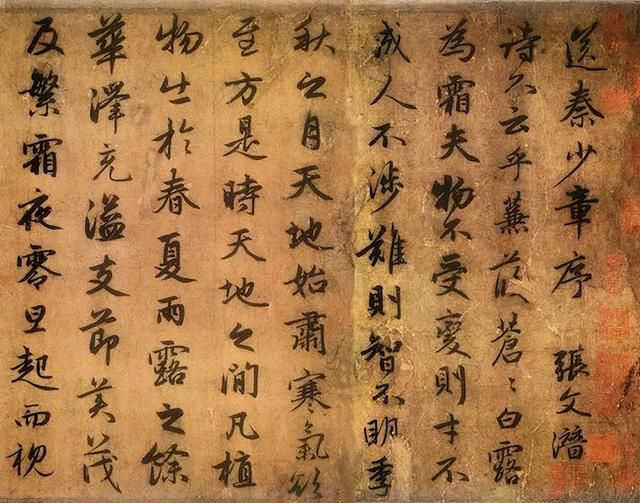 送秦少章序 張文潛
詩不云乎蒹葭蒼〻白露
為霜夫物不受變則才不
成人不涉難則智不明季
秋之月天地始肅寒氣欲
至方是時天地之間凡植
物出於春夏雨露之餘
華澤充溢支節美茂
及繁霜夜零旦起而視